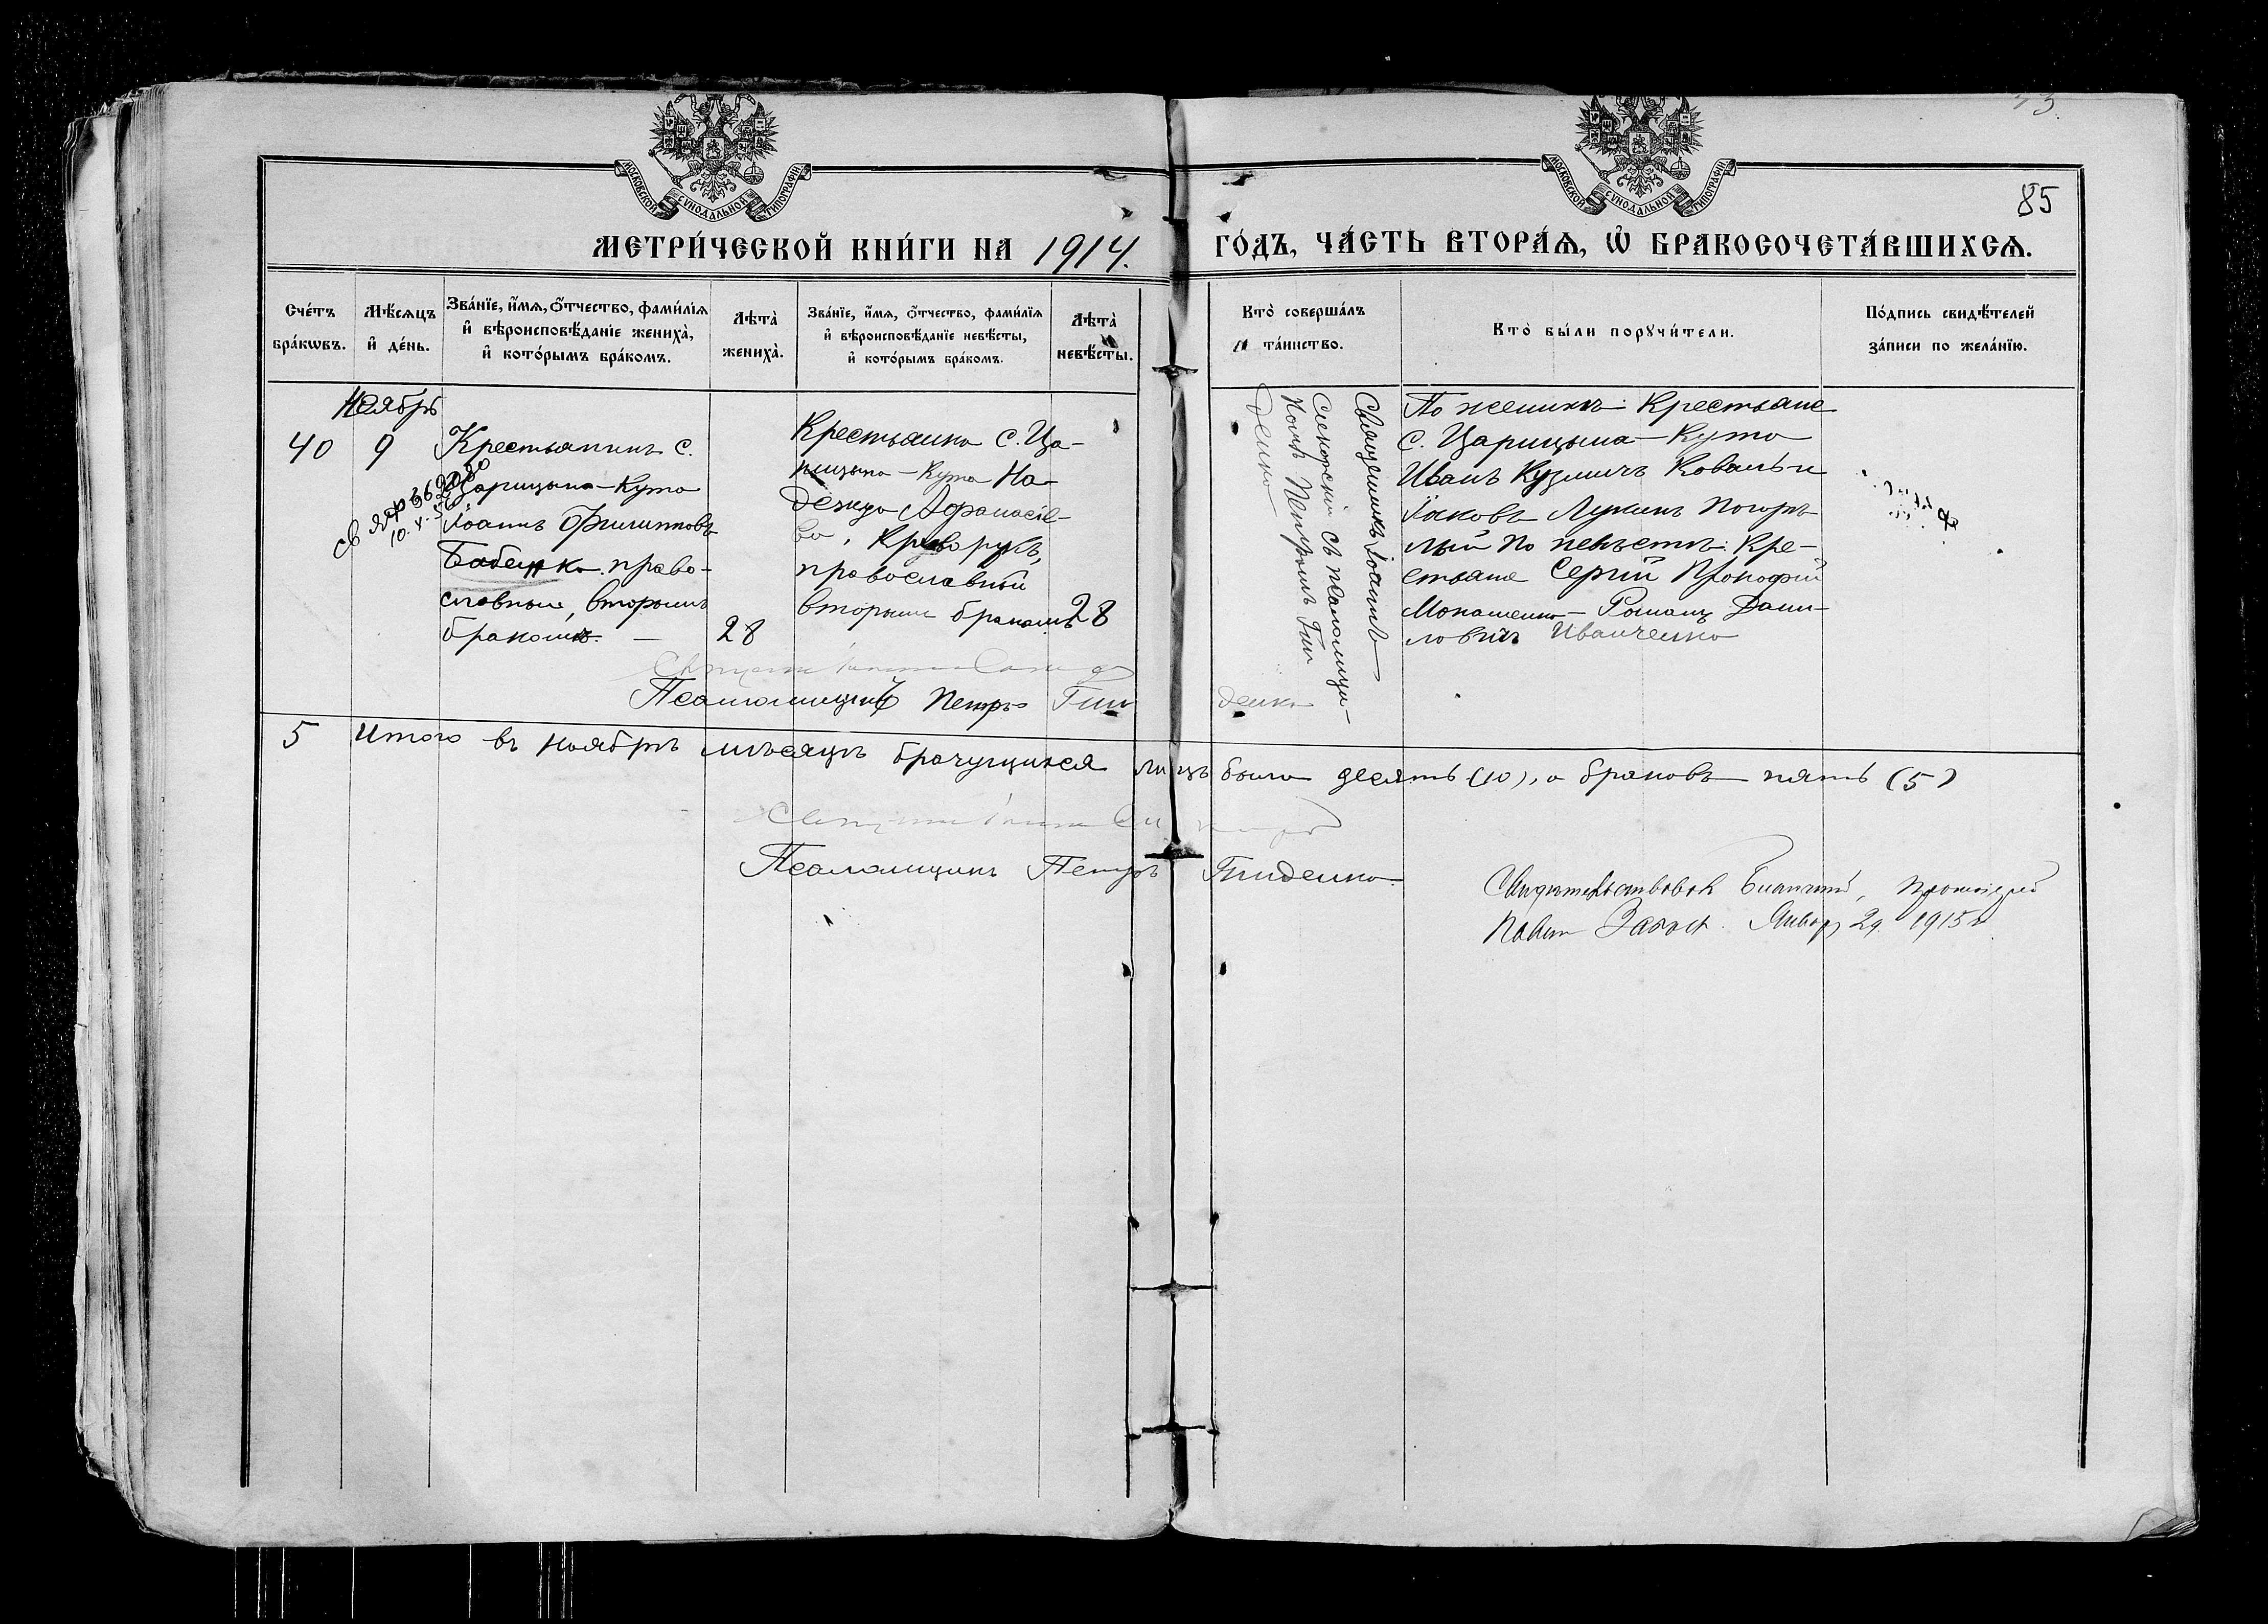 73
85
МОСКОВСКОЙ СѴНОДАЛЬНОЙ ТИПОГРАФІИ
МОСКОВСКОЙ СѴНОДАЛЬНОЙ ТИПОГРАФІИ
МЕТРИ́ЧЕСКОЙ КНИ́ГИ НА 1914. ГО́ДЪ, ЧА́СТЬ ВТОРА́Ѧ, Ѽ БРАКОСОЧЕТА́ВШИХСѦ.
Сче́тъ бра́кѡвъ.
Мѣ́сѧцъ и҆ де́нь.
Зва́нїе, и҆́мѧ, ѻ҆́тчество, фами́лїѧ и҆ вѣроисповѣ́данїе жениха̀, и҆ кото́рымъ бра́комъ.
Лѣта̀ жениха̀.
Зва́нїе, и҆́мѧ, ѻ҆́тчество, фами́лїѧ и҆ вѣроисповѣ́данїе невѣ́сты, и҆ кото́рымъ бра́комъ.
Лѣта̀ невѣ́сты.
Кто̀ соверша́лъ та́инство.
Кто̀ бы́ли порꙋчи́тели.
По́дпись свидѣ́телей за́писи по жела́нїю.
Ноябрь
40
9
Крестьянинъ с.
Царицына-Кута
Іоаннъ Филипповъ
Бабенко право-
славный, вторымъ
бракомъ. —
28
Крестьянка с. Ца-
рицына-Кута На-
дежда Афанасіе-
ва, Криворукъ,
православный
вторымъ бракомъ
28
Священникъ Іоаннъ
Сикорскій съ псаломщи-
комъ Петромъ Гни
денко
По женихѣ: Крестьяне
с. Царицына-Кута
Иванъ Кузмичъ Коваль и
Іаковъ Лукинъ Погорѣ-
лый по невѣстѣ: Кре-
стьяне Сергій Прокофій
Монашенко- Романъ Дани-
ловичъ Иванченко
Псаломщикъ Петръ Гни денко
5 Итого въ ноябрѣ мѣсяцѣ брачущихся лицъ было десять (10), а браковъ пять (5)
Псаломщикъ Петръ Гниденко
Свидѣтельствовалъ Благочинный, Протоіерей
Январь 29. 1915 г.